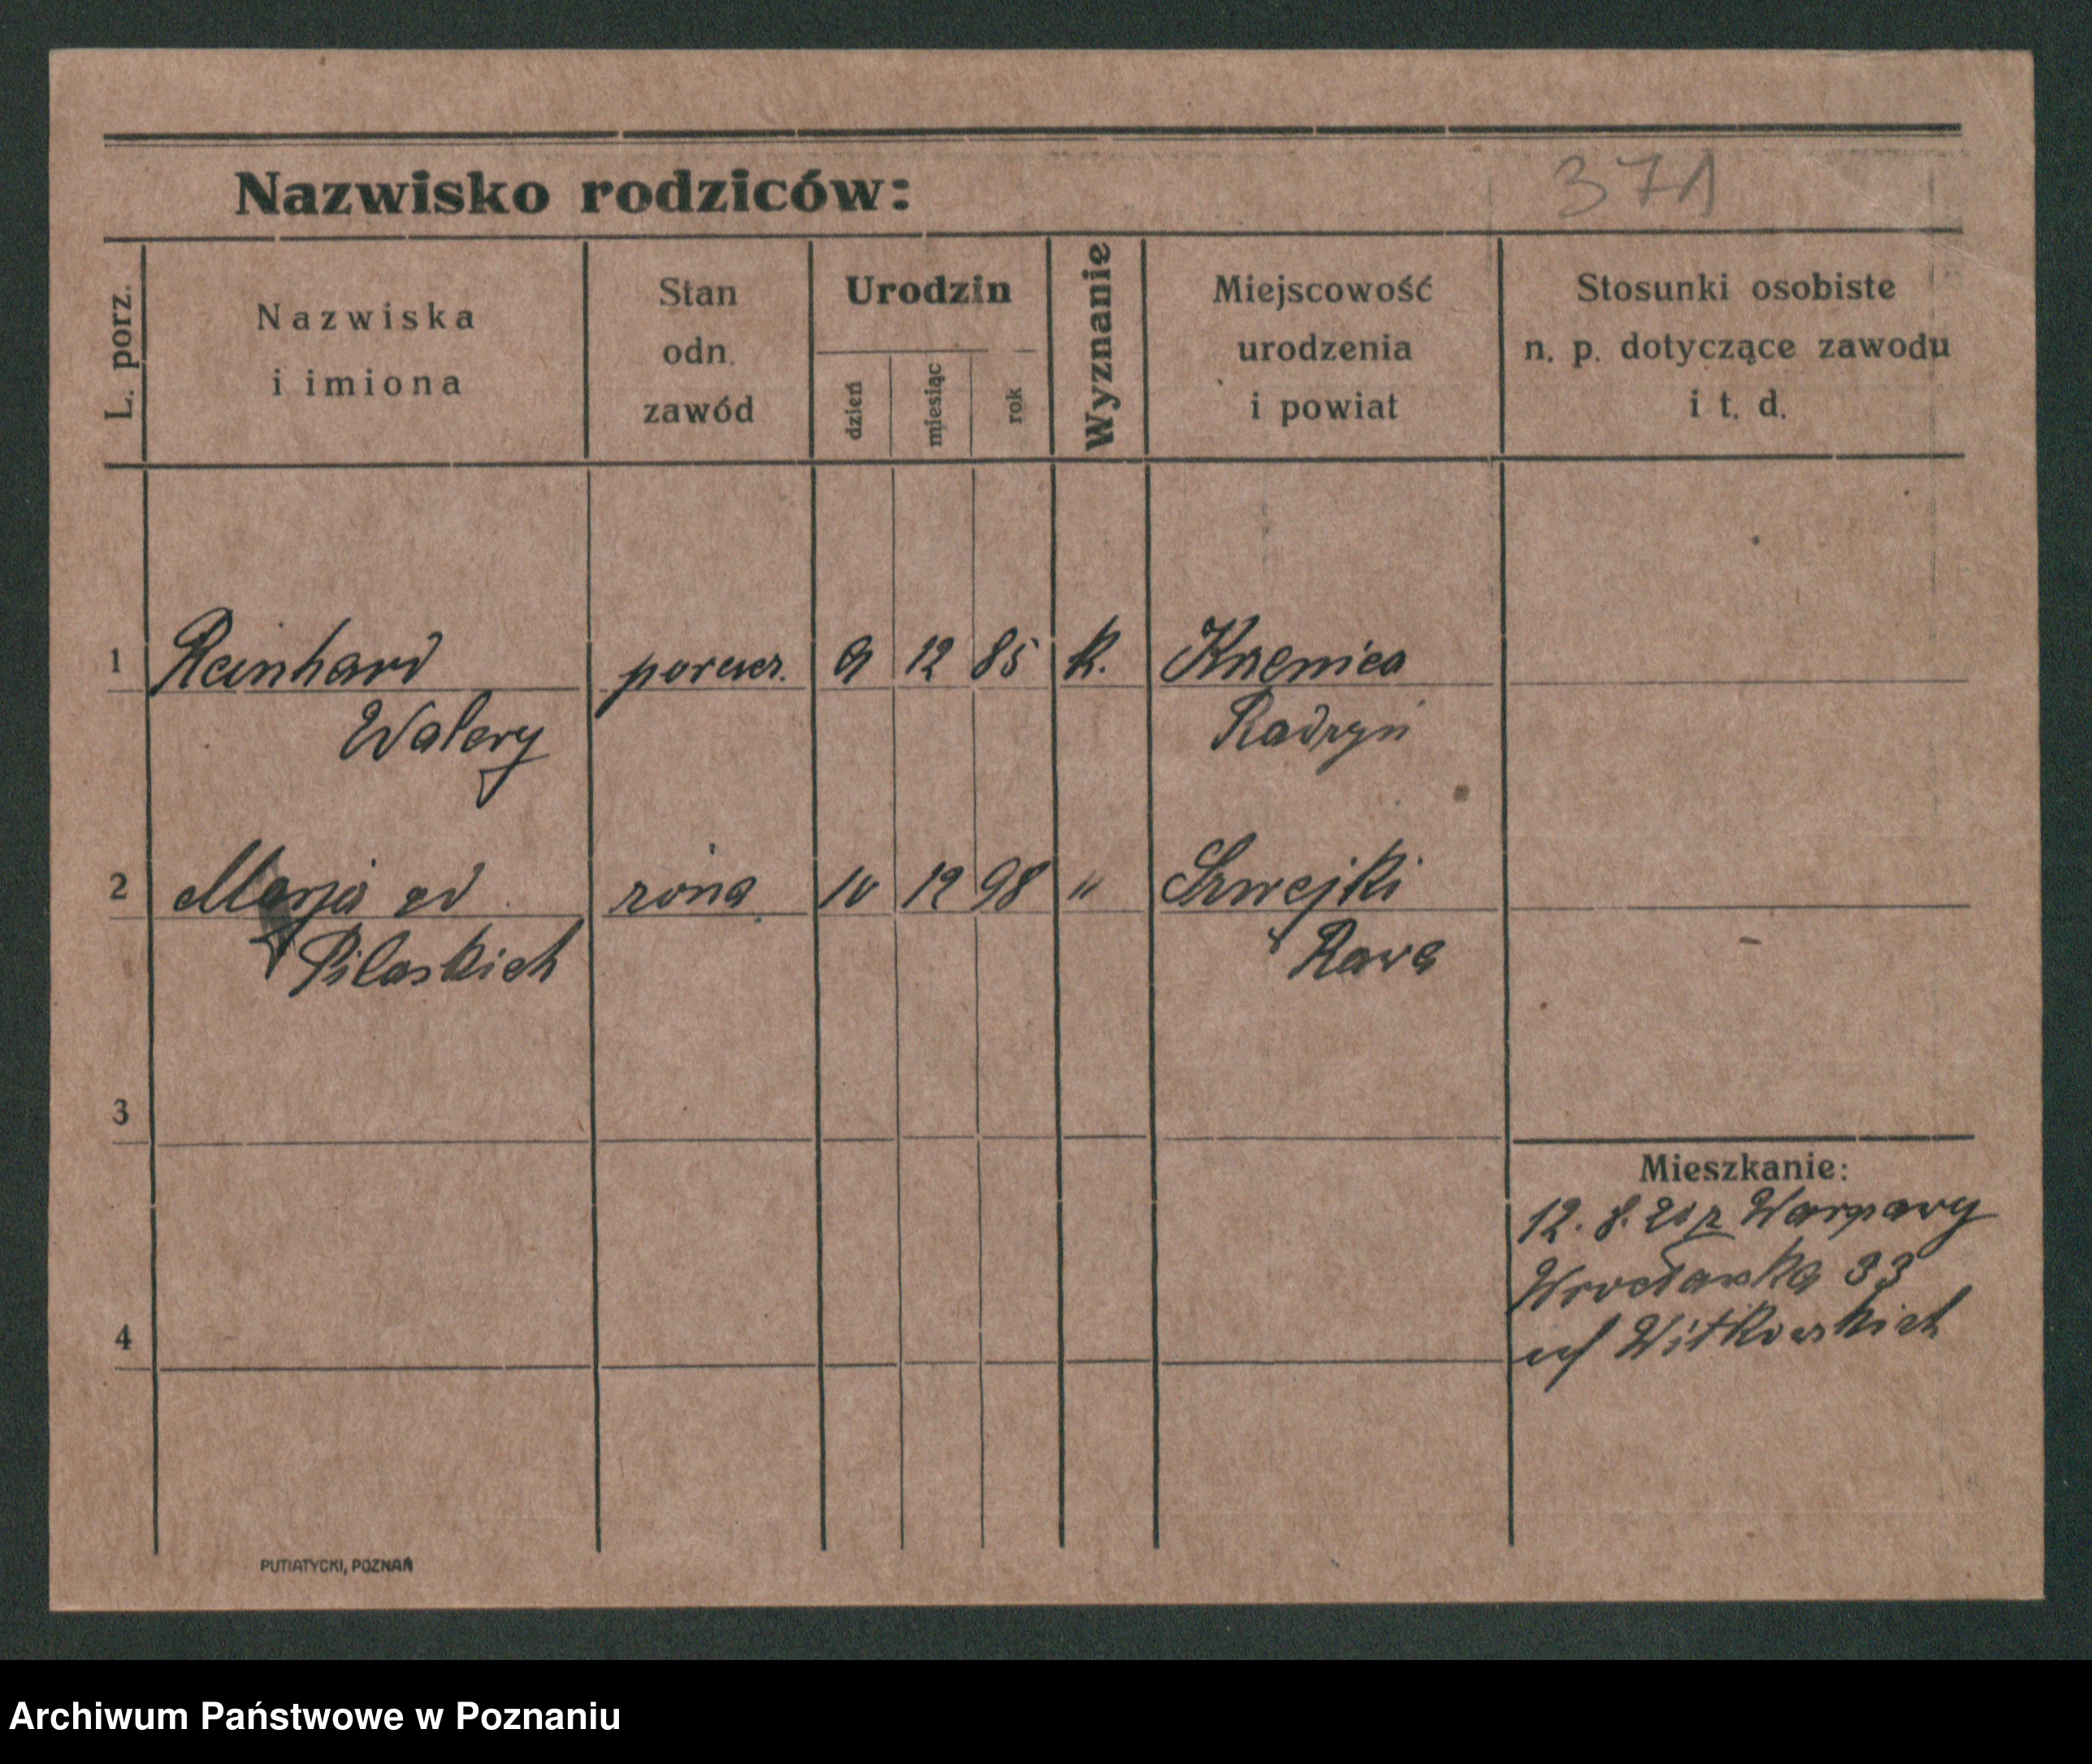 Nazwisko rodziców: 371
L. porz.
Nazwiska
i imiona
Stan
odn.
zawód
Urodzin
dzień
miesiąc
rok
Wyznanie
Miejscowość
urodzenia
i powiat
Stosunki osobiste
n. p. dotyczące zawodu
i t. d.
1 Reinhard 9 12 85 K. Krzenica
Walery Radzyń
2 Marja żona 10 12 98 " Szwejki
Pilaskich Rawa
3
Mieszkanie:
12. 8. 20 z Warszawy
Wrocławska 33
4 Witkowskich
PUTIATYCKI, POZNAŃ
Archiwum Państwowe w Poznaniu